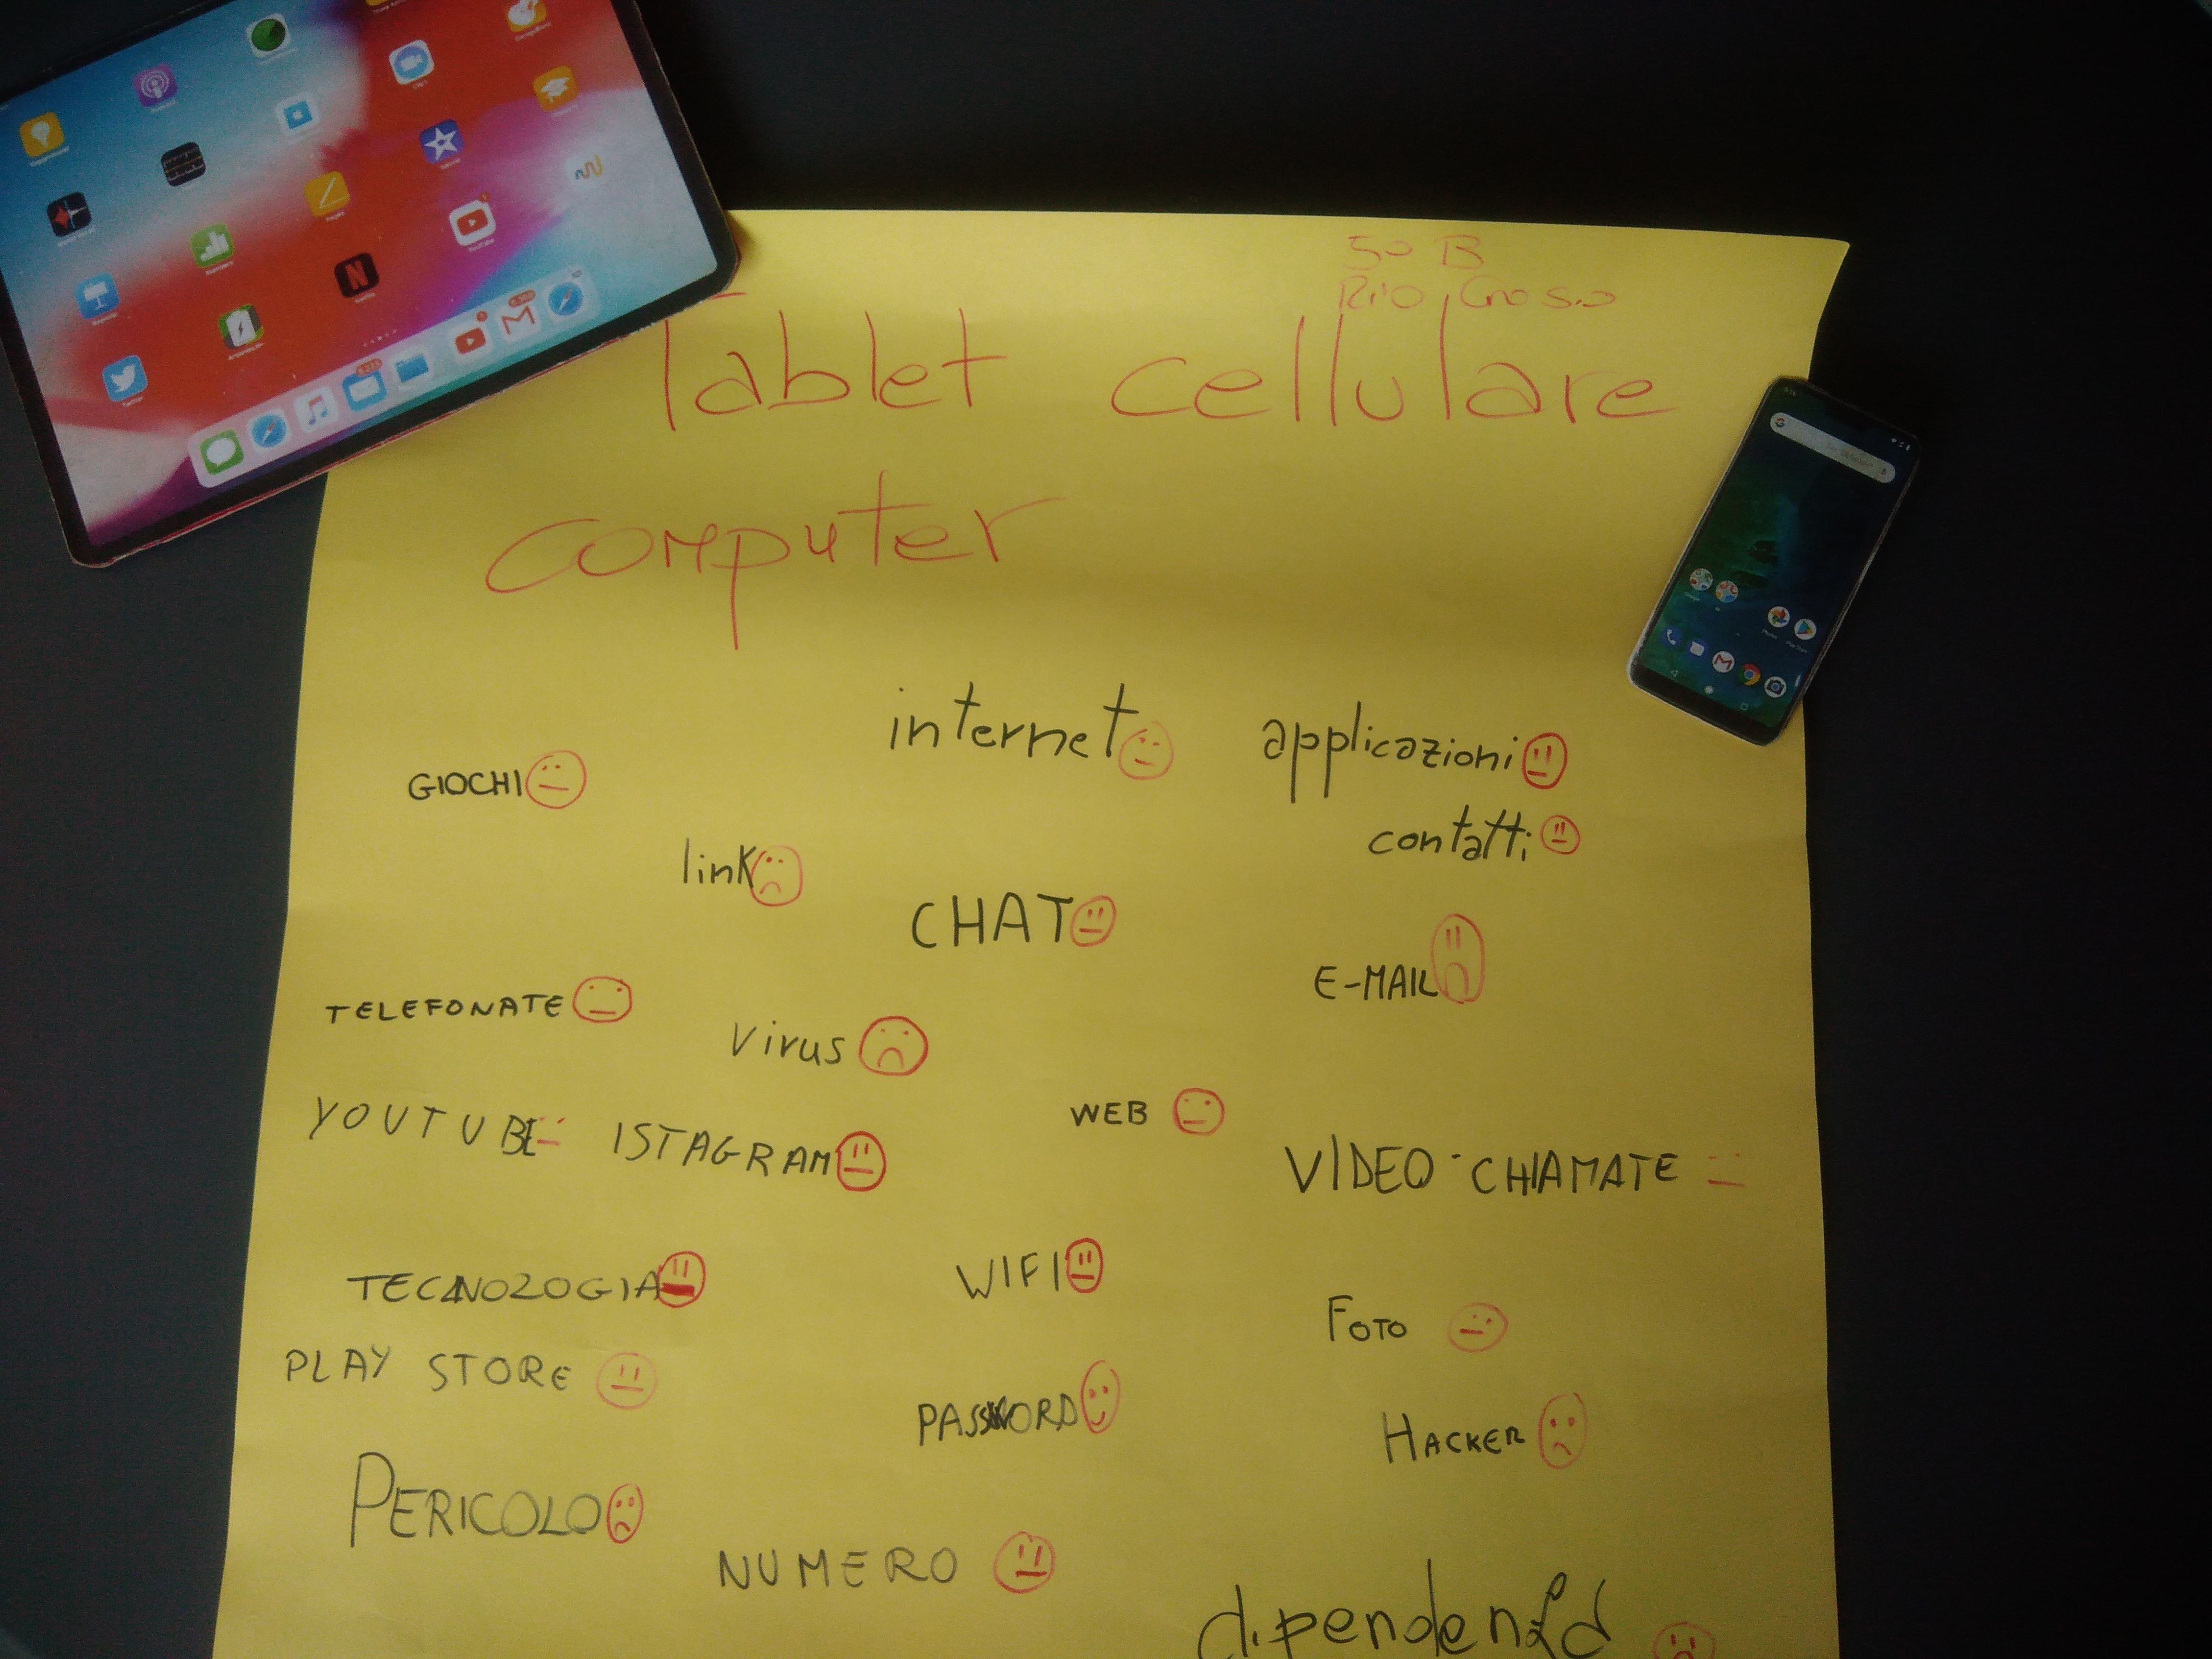 50 B
Tablet cellulare
computer
internet applicazioni
GIOCHI
contatti
link
CHAT
E-MAIL
TELEFONATE
Virus
YOUTUBE ISTAGRAM
WEB
VIDEO-CHIAMATE
TECNOLOGIA
WIFI
FOTO
PLAY STORE
PASSWORD
HACKER
PERICOLO
NUMERO
dipendenza